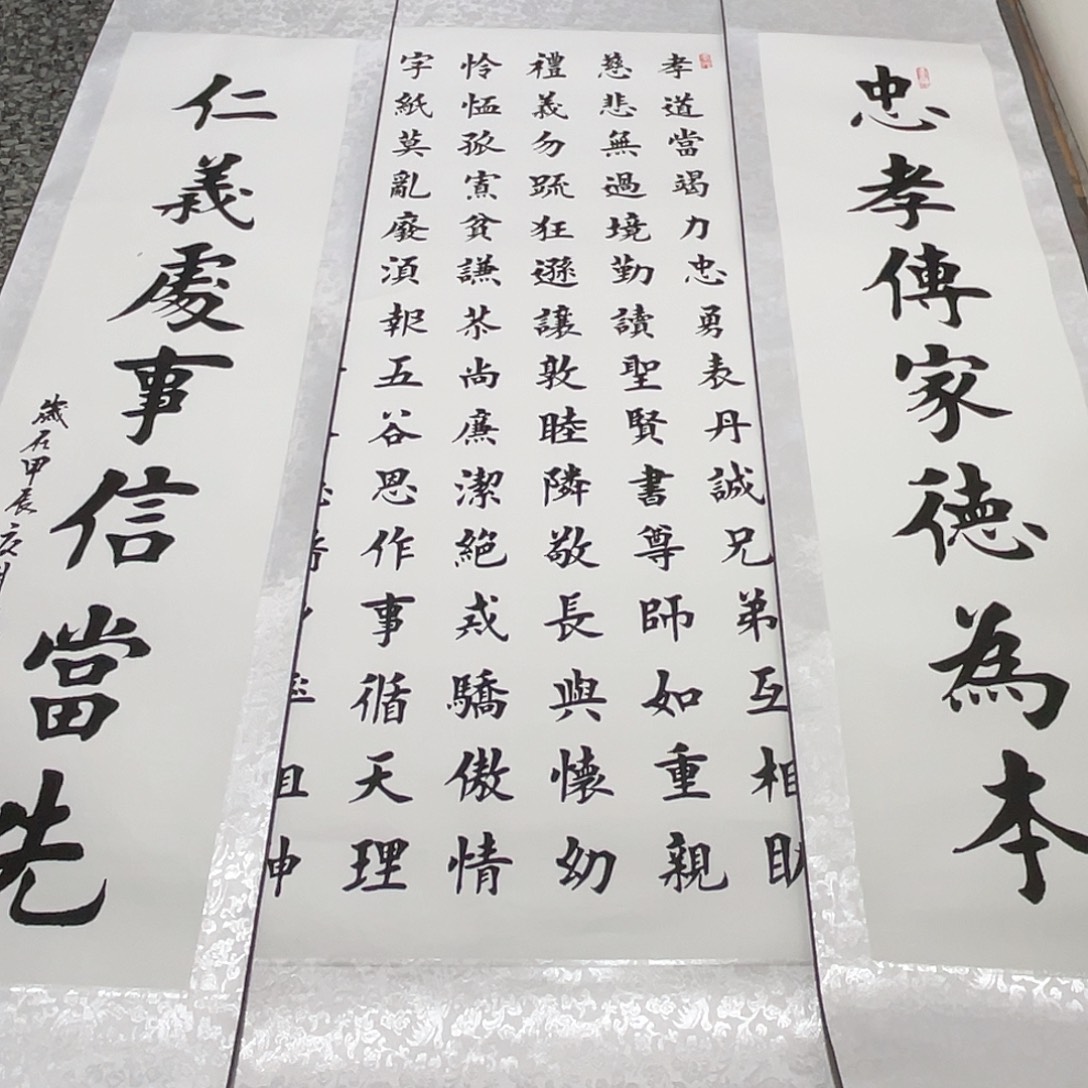 忠孝傳家德為本
孝道當竭力忠勇表丹誠兄弟互相助
慈悲無過境勤讀聖賢書尊師如重親
禮義勿疏狂遜讓敦睦隣敬長與懷幼
怜恤孤寡貧謙恭尚廉潔絕戒驕傲情
字紙莫亂廢須報五谷思作事循天理
仁義處事信當先
歲在甲辰